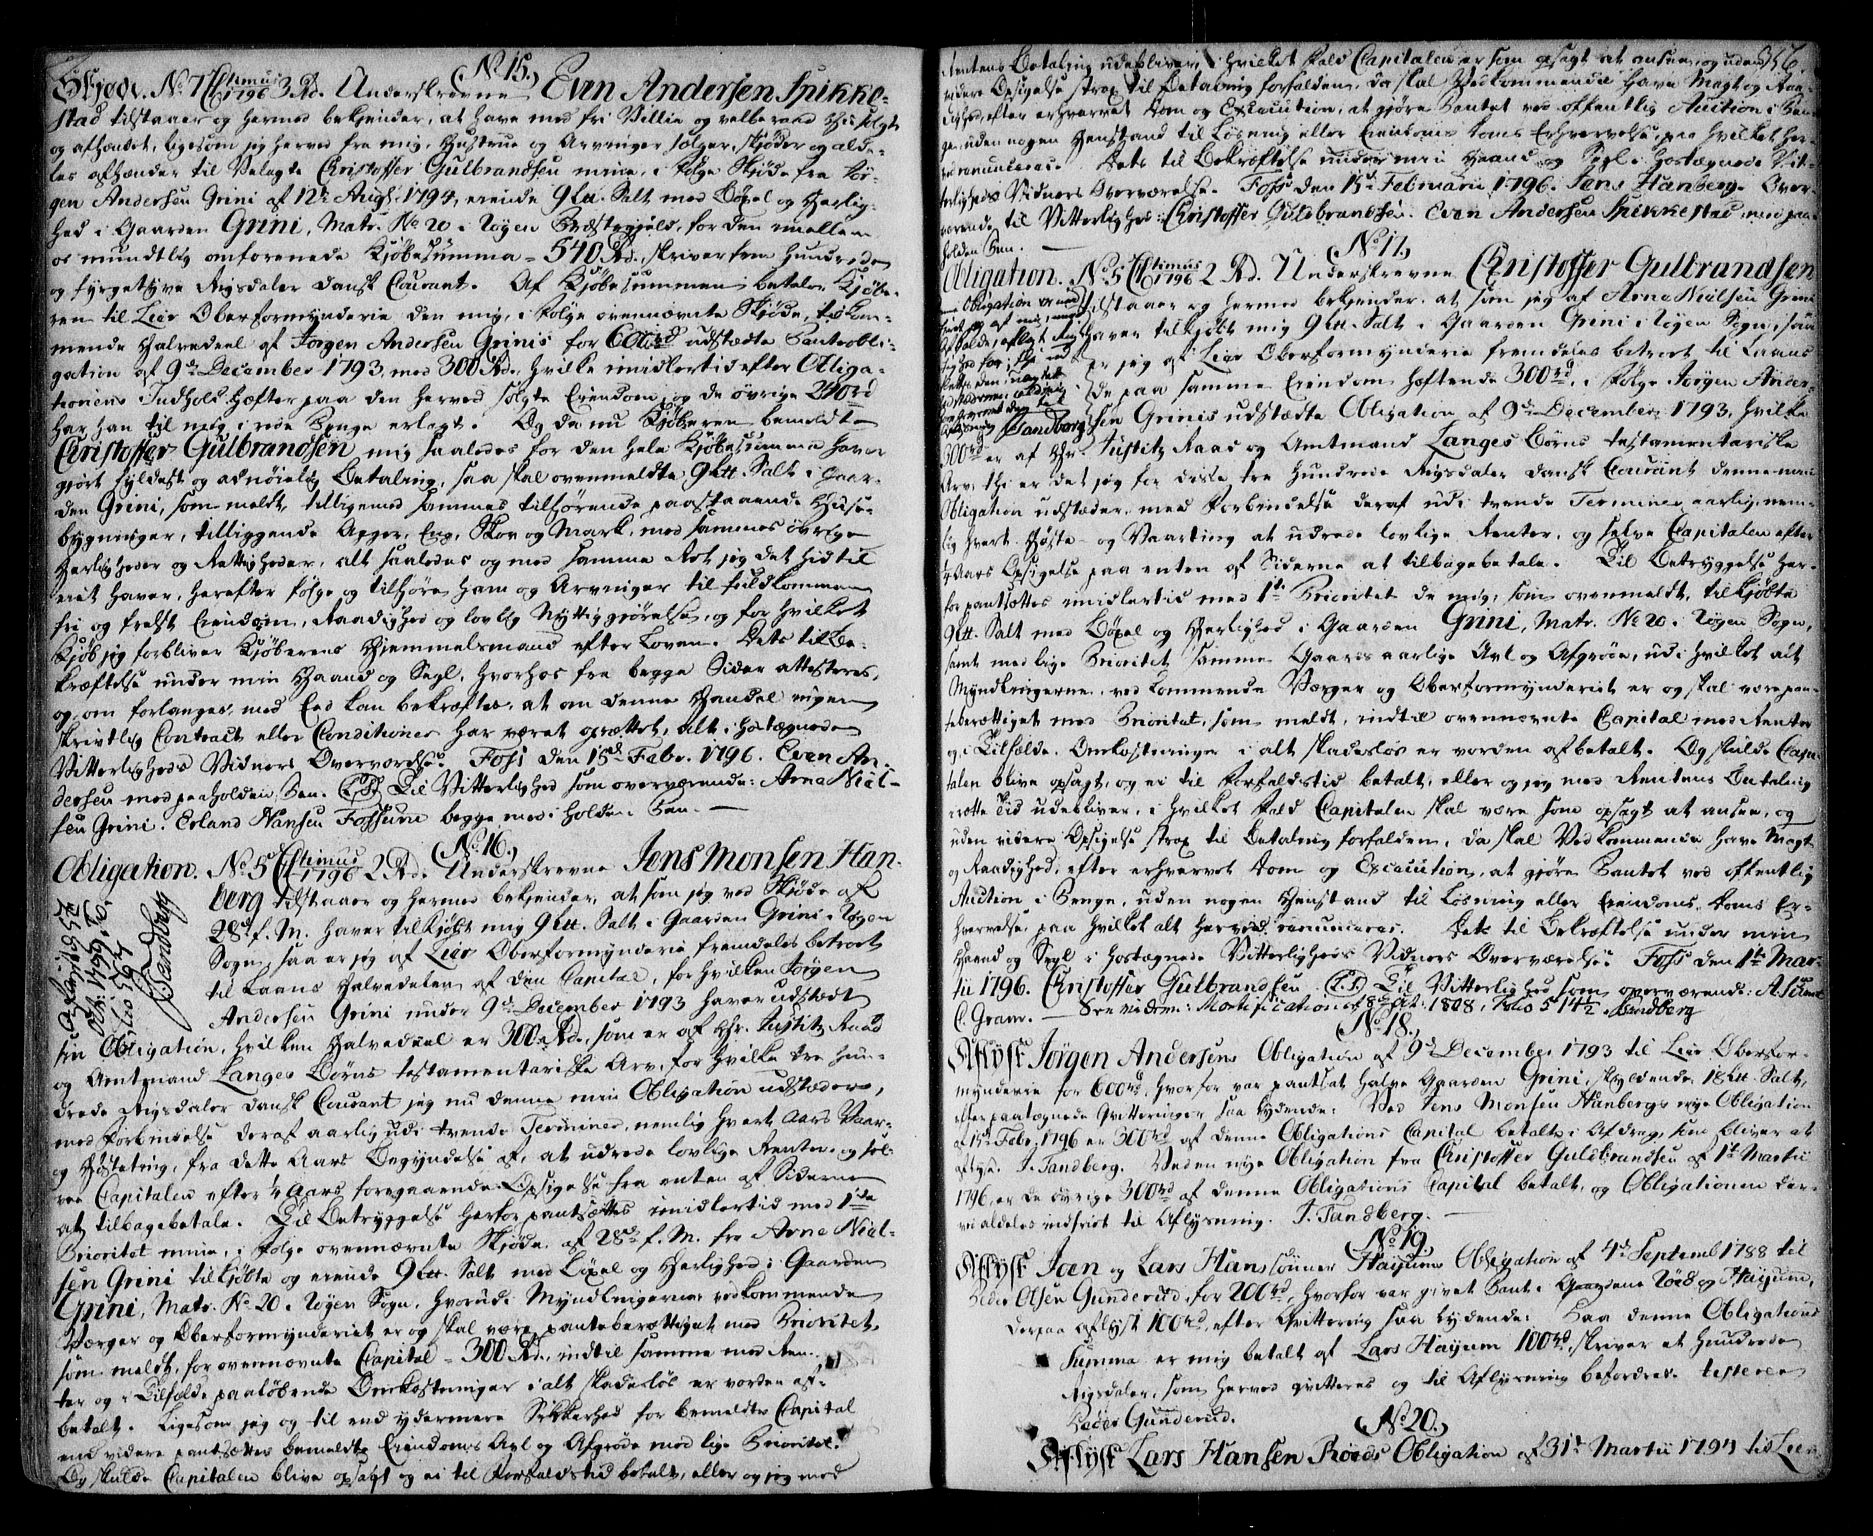 No 15.)
Skjøde. No 7 Ctimus 1796 3 Rd. Underskrevne Even Andersen Spikke-
stad tilstaaer og hermed bekjender, at have med fri Villie og velberaad Hu solgt
og afhændet, ligesom jeg herved fra mig, Hustrue og Arvinger sælger, skjøder og alde-
les afhænder til Velagte Christoffer Gulbrandsen mine, i følge Skjøde fra Jør-
gen Andersen Grini af 12te Augs. 1794, eiende 9 Ltt. Salt med Bøxel og Herlig-
hed i Gaarden Grini, Matr. No 20 i Røgen Præstegjeld, for den imellem
os mundtlig omforenede Kjøbesumma = 540 Rd., skriver fem Hundrede
og fyrgetyve Rigsdaler Dansk Courant. Af Kjøbesummen betaler Kjøbe-
ren til Lier Oberformynderie den mig, i følge ovennævnte Skjøde, tilkom-
mende Halvedeel af Jørgen Andersen Grinis for 600 rd udstædte Pantobli-
gation af 9de December 1793, med 300 Rd., hvilke imidlertid efter Obliga-
tionens Indhold hæfter paa den herved solgte Eiendom, og de øvrige 240 rd
har han til mig i rede Penge erlagt. Og da nu Kjøberen bemeldte
Christoffer Gulbrandsen mig saaledes for den hele Kjøbesumma haver
gjort fyldest og adnøielig Betaling, saa skal ovenmeldte 9 Ltt. Salt i Gaar-
den Grini, som meldt, tilligemed sammes tilhørende paastaaende Huse-
bygninger, tilliggende Ager, Eng, Skov og Mark, med sammes øvrige
Herligheder og Rettigheder, alt saaledes og med samme Ret jeg det hidtil
eiet haver, herefter følge og tilhøre ham og Arvinger til fuldkommen
fri og frelst Eiendom, Raadighed og lovlig Nyttiggjørelse, og for hvilket
Kjøb jeg forbliver Kjøberens Hjemmelsmand efter Loven. Dets til Be-
kræftelse under min Haand og Segl, hvorhos fra begge Sider attesteres,
og, om forlanges, med Eed kan bekræftes, at om denne Handel ingen
skriftlig Contract eller Conditioner har været oprettet, alt i hostegnede
Vitterligheds Vidners Overværelse. Foss den 15de Febr. 1796. Even An-
dersen med paaholden Pen. (L.S.) Til Vitterlighed som overværende: Arne Niel-
sen Grini. Erland Hansen Fossum begge med i holden Pen.
No 16.)
Obligation. No 5 Ctimus 1796 2 Rd. Underskrevne Jens Monsen Han-
berg tilstaaer og hermed bekjender, at som jeg ved Skjøde af
28de f. M. haver tilkjøbt mig 9 Ltt. Salt i Gaarden Grini i Røgen
Sogn, saa er jeg af Lier Oberformynderie fremdeles betroet
til Laans Halvedelen af den Capital, for hvilken Jørgen
Andersen Grini under 9de December 1793 haver udstædt
sin Obligation, hvilken Halvedeel er 300 Rd., som er af Hr. Justitz Raad
og Amtmand Langes Børns testamentariske Arv, for hvilke tre Hun-
drede Rigsdaler Dansk Courant jeg nu denne min Obligation udstæder,
med Forbindelse deraf aarlig udi tvende Terminer, nemlig hvert Aars Vaar-
og Høsteting, fra dette Aars Begyndelse af, at udrede lovlige Renter og sel-
ve Capitalen efter 1/4 Aars foregaaende Opsigelse fra enten af Siderne
at tilbagebetale. Til Betryggelse herfor pantsættes imidlertid med 1ste
Prioritet mine, i følge ovennævnte Skjøde af 28de f. M. fra Arne Niel-
sen Grini tilkjøbte og eiende 9 Ltt. Salt med Bøxel og Herlighed i Gaarden
Grini, Matr. No 20 i Røgen Sogn, hvorudi Myndlingernes vedkommende
Værger og Oberformynderiet er og skal være panteberættiget med Prioritet,
som meldt, for ovennævnte Capital = 300 Rd., indtil samme med Ren-
ter og i Tilfælde paaløbende Omkostninger i alt skadesløs er vorden af-
betalt. Ligesom jeg og til end ydermere Sikkerhed for bemeldte Capital
end videre pantsætter bemeldte Eiendoms Avl og Afgrøde med lige Prioritet.
Og skulde Capitalen blive opsagt og ei til Forfaldstid betalt, eller og jeg med
Aflyst d. 5te
Octr. 1799. To-
lio 567.
Tandberg
356.
Rentens Betaling udebliver, i hvilket Fald Capitalen er som opsagt at ansee, og uden
videre Opsigelse strax til Betaling forfalden, da skal Vedkommende have Magt og Raa-
dighed, efter erhvervet Dom og Execution, at gjøre Pantet ved offentlig Auction i Pen-
ge, uden nogen Henstand til Løsning eller Eiendoms Doms Erhvervelse, paa hvilket her-
ved renunceres. Dets til Bekræftelse under min Haand og Segl i hostegnede Vit-
terligheds Vidners Overværelse. Foss den 15de Februarii 1796. Jens Hanberg. Over-
værende til Vitterlighed: Christoffer Guldbrandsen. Even Andersen Spikkestad med paa-
holden Pen.
No 17.)
Obligation. No 5 Ctimus 1796 2 Rd. Underskrevne Christoffer Gulbrandsen
tilstaaer og hermed bekjender, at som jeg af Arne Nielsen Grini
haver tilkjøbt mig 9 Ltt. Salt i Gaarden Grini i Røgen Sogn, saa
er jeg af Lier Oberformynderie fremdeles betroet til Laans
de paa samme Eiendom hæftende 300 rd, i følge Jørgen Ander-
sen Grinis udstædte Obligation af 9de December 1793, hvilke
300 rd er af Hr. Justitz Raad og Amtmand Langes Børns testamentariske
Arv, thi er det jeg for disse tre Hundrede Rigsdaler Dansk Courant denne min
Obligation udstæder, med Forbindelse deraf udi tvende Terminer aarlig, nem-
lig hvert Høste- og Vaarting at udrede lovlige Renter, og selve Capitalen efter
1/4 Aars Opsigelse paa enten af Siderne at tilbagebetale. Til Betryggelse her-
for pantsættes imidlertid med 1te Prioritet de mig, som ovenmeldt, tilkjøbte
9 Ltt. Salt med Bøxel og Herlighed i Gaarden Grini, Matr. No 20 i Røgen Sogn,
samt med lige Prioritet samme Gaards aarlige Avl og Afgrøde, udi hvilket alt
Myndlingerne, vedkommende Værger og Oberformynderiet er og skal være pan-
teberættiget med Prioritet, som meldt, indtil ovennævnte Capital med Renter
og i Tilfælde Omkostninger i alt skadesløs er vorden afbetalt. Og skulde Capi-
talen blive opsagt, og ei til Forfaldstid betalt, eller og jeg med Rentens Betaling
i rette Tid udebliver, i hvilket Fald Capitalen skal være som opsagt at ansee, og
uden videre Opsigelse strax til Betaling forfalden, da skal Vedkommende have Magt
og Raadighed, efter erhvervet Dom og Execution, at gjøre Pantet ved offentlig
Auction i Penge, uden nogen Henstand til Løsning eller Eiendoms Doms Er-
hvervelse, paa hvilket alt herved renunceres. Dets til Bekræftelse under min
Haand og Segl i hostegnede Vitterligheds Vidners Overværelse. Foss den 1te Mar-
tii 1796. Christoffer Gulbrandsen (L.S.) Til Vitterlighed som overværende: A.
C. Gram. See videre: Mortification af 8de Oct. 1808, Folio 514 1/2. Tandberg
No 18.)
Aflyst Jørgen Andersens Obligation af 9de December 1793 til Lier Oberfor-
mynderie for 600 rd, hvorfor var pantsat halve Gaarden Grini, skyldende 18 Ltt. Salt,
efter paategnede Qvitteringer saa lydende: Ved Jens Monsen Hanbergs nye Obligation
af 15de Febr. 1796 er 300 rd af denne Obligations Capital betalt i Afdrag, som bliver at
aflyse. J. Tandberg. Ved en nye Obligation fra Christoffer Guldbrandsen af 1te Martii
1796, er de øvrige 300 rd af denne Obligations Capital betalt, og Obligationen der-
ved aldeles indfriet til Aflysning. J. Tandberg.
No 19.)
Aflyst Joen og Lars Hanssønner Høyums Obligation af 4de Septembr. 1788 til
Peder Olsen Gunderud, for 200 rd, hvorfor var givet Pant i Gaardene Røed og Høyum,
derpaa aflyst 100 rd, efter Qvittering saa lydende: Paa denne Obligations
Summa er mig betalt af Lars Høyum 100 rd, skriver et Hundrede
Rigsdaler, som herved qvitteres og til Aflysning befordres. testerer
Peder Gunderud.
No 20.)
Aflyst Lars Hansen Røeds Obligation af 31te Martii 1794 til Lier